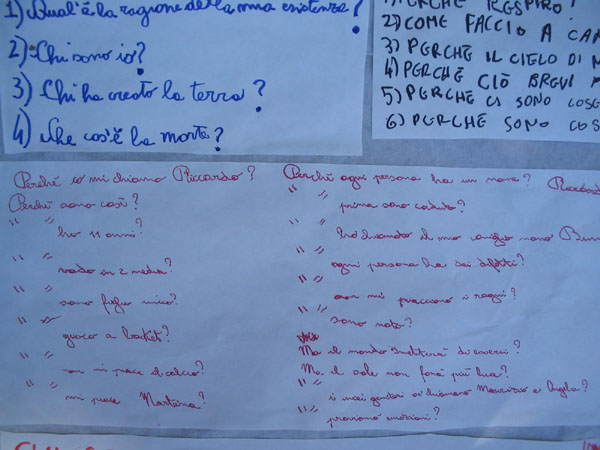 1) Qual'è la ragione della mia esistenza?
2) Chi sono io?
3) Chi ha creato la terra?
4) Che cos'è la morte?
1) PERCHÈ RESPIRO?
2) COME FACCIO A
3) PERCHÈ IL CIELO DI
4) PERCHÈ CIÒ
5) PERCHÈ CI SONO
6) PERCHÈ SONO
Perché io mi chiamo Riccardo?
Perché sono così?
" " ho 11 anni?
" " vado in 2 media?
" " sono figlio unico?
" " gioco a basket?
" " non mi piace il calcio?
" " mi piace Martina?
Perché ogni persona ha un nome?
" " prima sono caduto?
" " ho chiamato il mio coniglio nano
" " ogni persona ha dei difetti?
" " non mi piacciono i ragni?
" " sono nato?
Ma il mondo smetterà di esserci?
Ma il sole non farà più luce?
" " i miei genitori si chiamano Maurizio e Angela?
" " proviamo emozioni?